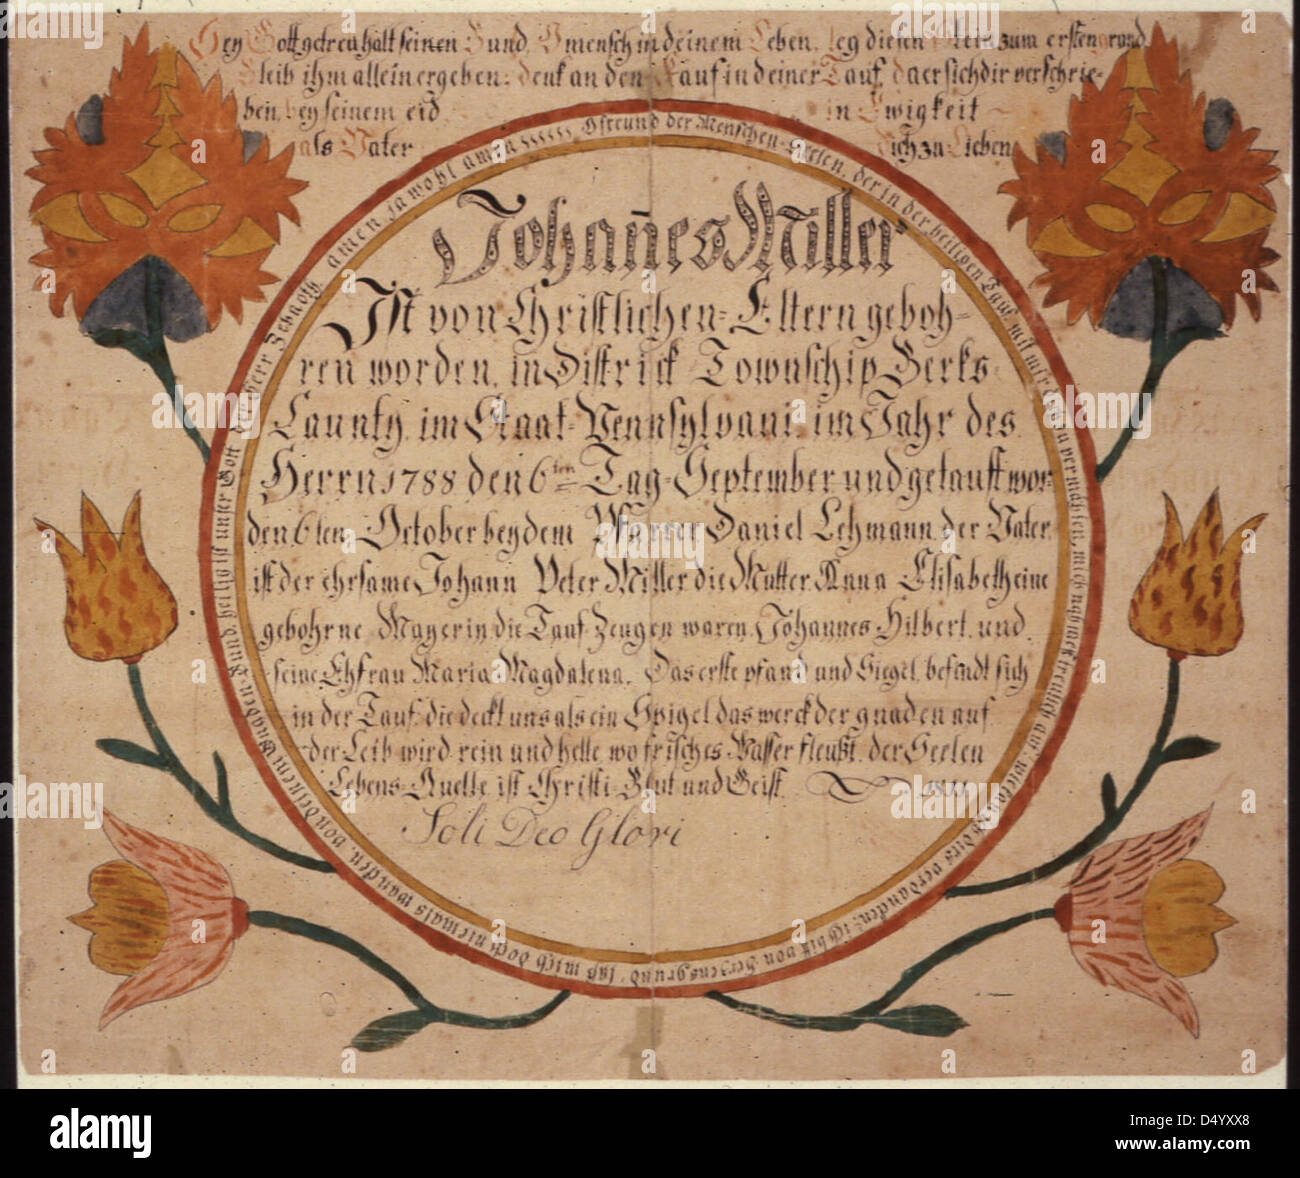 Sey Gott getreu halt seinen Bund, O mensch in deinem Leben, leg diesen Stein zum ersten grund
Bleib ihm allein ergeben: denk an den Kauf in deiner Tauf, da er sich dir verschrie=
ben, bey seinem eid in Ewigkeit
als Vater dich zu Lieben
O freund der Menschen-Seelen, der in der heiligen Tauf mit mir dich zu vermählen, mich nahmest treulich auf, wie hoch ich dirs verdanden: ich bit von Herzensgrund, laß mich doch niemals wanden, von deinem Gnaden-Bund. heilig ist unser Gott der Herr Zebaoth amen ja wohl amen
Johan̄es Miller
Ist von Christlichen=Eltern geboh=
ren worden, in Districk Townschip Berks=
Caunty, im Staat=Pennsylvani, im Jahr des
Herrn 1788 den 6ten Tag=September und getauft wor=
den 6ten October bey dem Pfarrer Daniel Lehmann, der Vater
ist der ehrsame Johann Peter Miller die Mutter Anna Elisabeth eine
gebohrne Mayerin, die Tauf-Zeugen waren, Johannes Hilbert, und
seine Ehfrau Maria Magdalena. Das erste pfand und Siegel, befindt sich
in der Tauf, die deckt uns als ein Spigel das werck der gnaden auf
der Leib wird rein und helle, wo frisches Wasser fleußt, der Seelen
Lebens=Quelle, ist Christi=Blut und Geist.
Soli Deo Glori
alamy
Image ID: D4YXX8
www.alamy.com